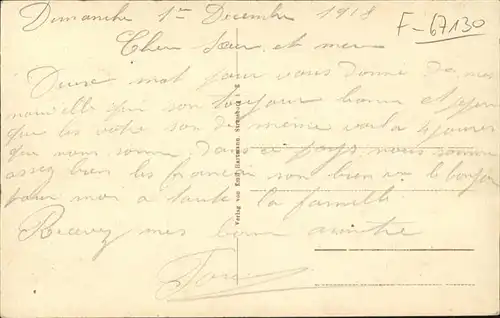 Dimanche 1er Decembre 1918
F-67130
Cher sœur et mere
Deux mot pour vous donné de mes
nouvelle qui son toujour bonne et
que les votre son de même voila 4 jours
que nous somme dans ce pays nous somme
assez bien les francai son bien vu le bonjour
pour moi a toute la famille
Recevez mes bonne amitie
Verlag von Emil Hartmann, Strassburg i. E.